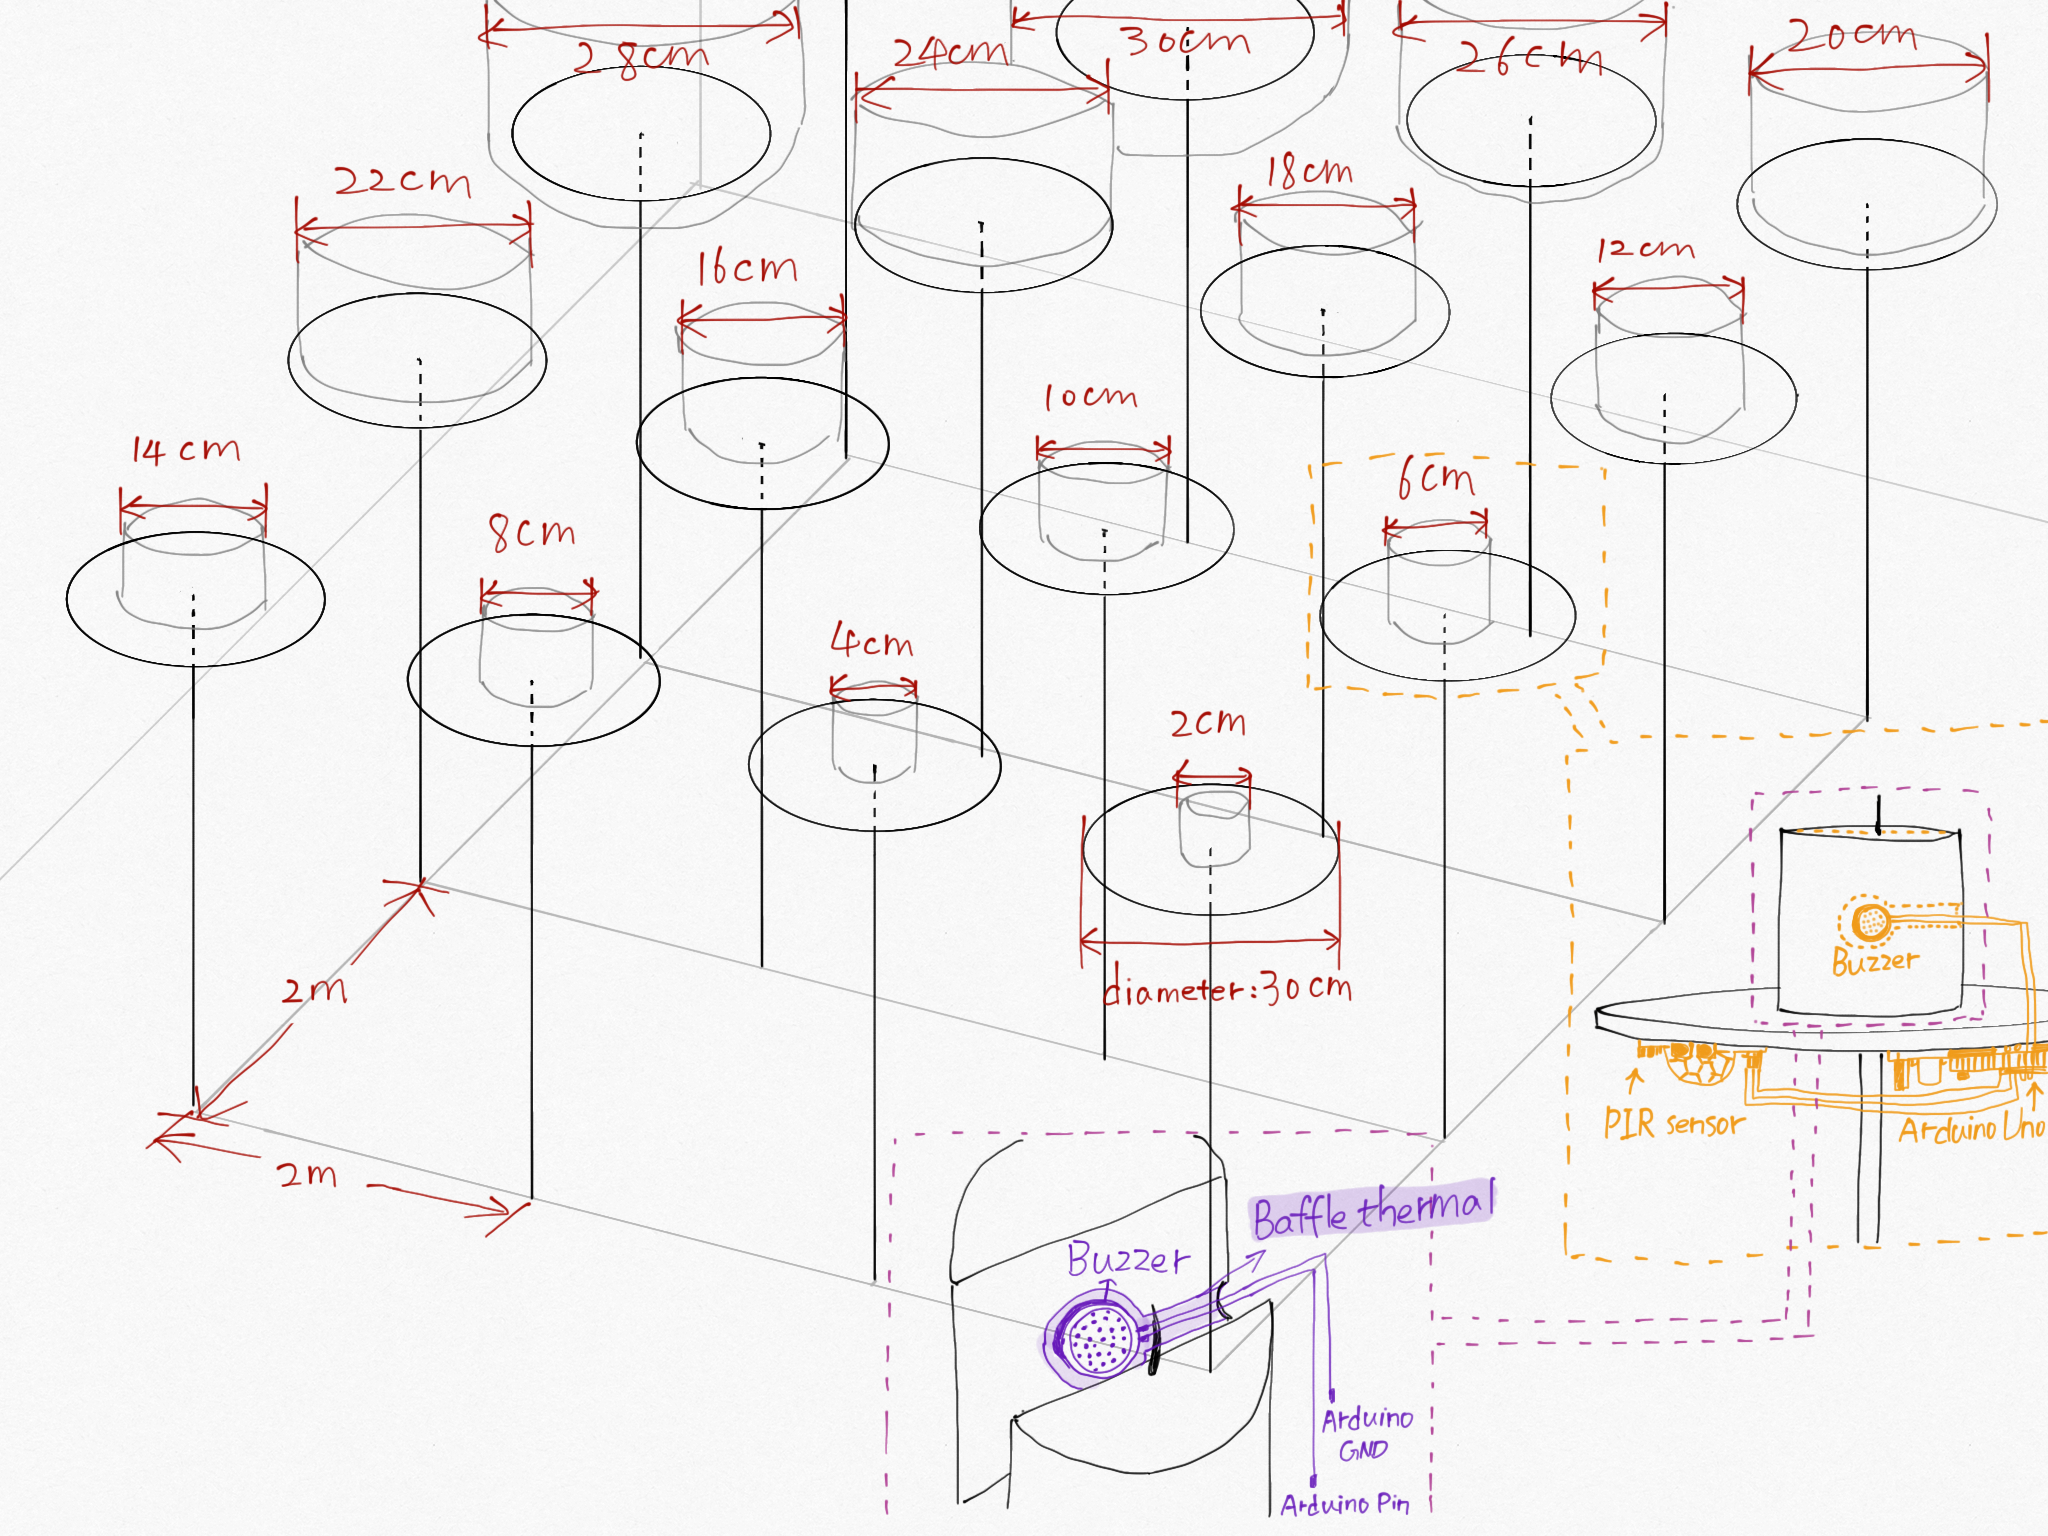 28cm
24cm
30cm
26cm
20cm
22cm
18cm
16cm
12cm
14cm
10cm
8cm
6cm
4cm
2cm
diameter:30cm
2m
2m
Buzzer
PIR sensor
Arduino Uno
Baffle thermal
Buzzer
Arduino
GND
Arduino Pin